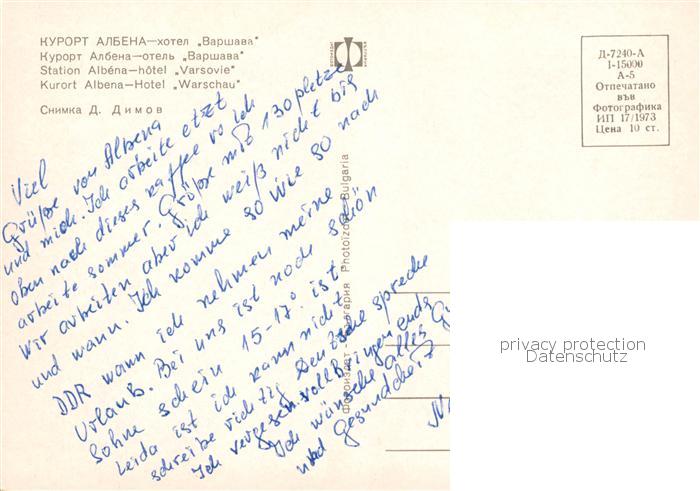 КУРОРТ АЛБЕНА—хотел „Варшава“
Курорт Албена—отель „Варшава“
Station Albéna—hôtel „Varsovie“
Kurort Albena—Hotel „Warschau“
Снимка Д. Димов
Д-7240-А
1-15000
А-5
Отпечатано
във
Фотографика
ИП 17/1973
Цена 10 ст.
Photoizdat Bulgaria
Viel
Grüße von Albena
und mich. Ich arbeite etzt
oben nach dieses kaffee wo ich
arbeite sommer. Größe mit 130 pletze
wir arbeiten aber ich weiß nicht bis
und wann. Ich komme so wie so nach
DDR wann ich nehmen meine
Urlaub. Bei uns ist noch schön
Sohne schein 15-17° ist.
Leida ist ich kann nicht
schreibe richtig Deutsche spreche
Ich vergesen
Ich wünsche alles
und gesundheit
privacy protection
Datenschutz